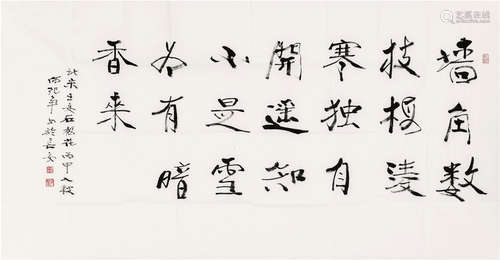 墙角数
枝梅凌
寒独自
開遥知
不是雪
为有暗
香来
此宋王安石梅花丙申入秋